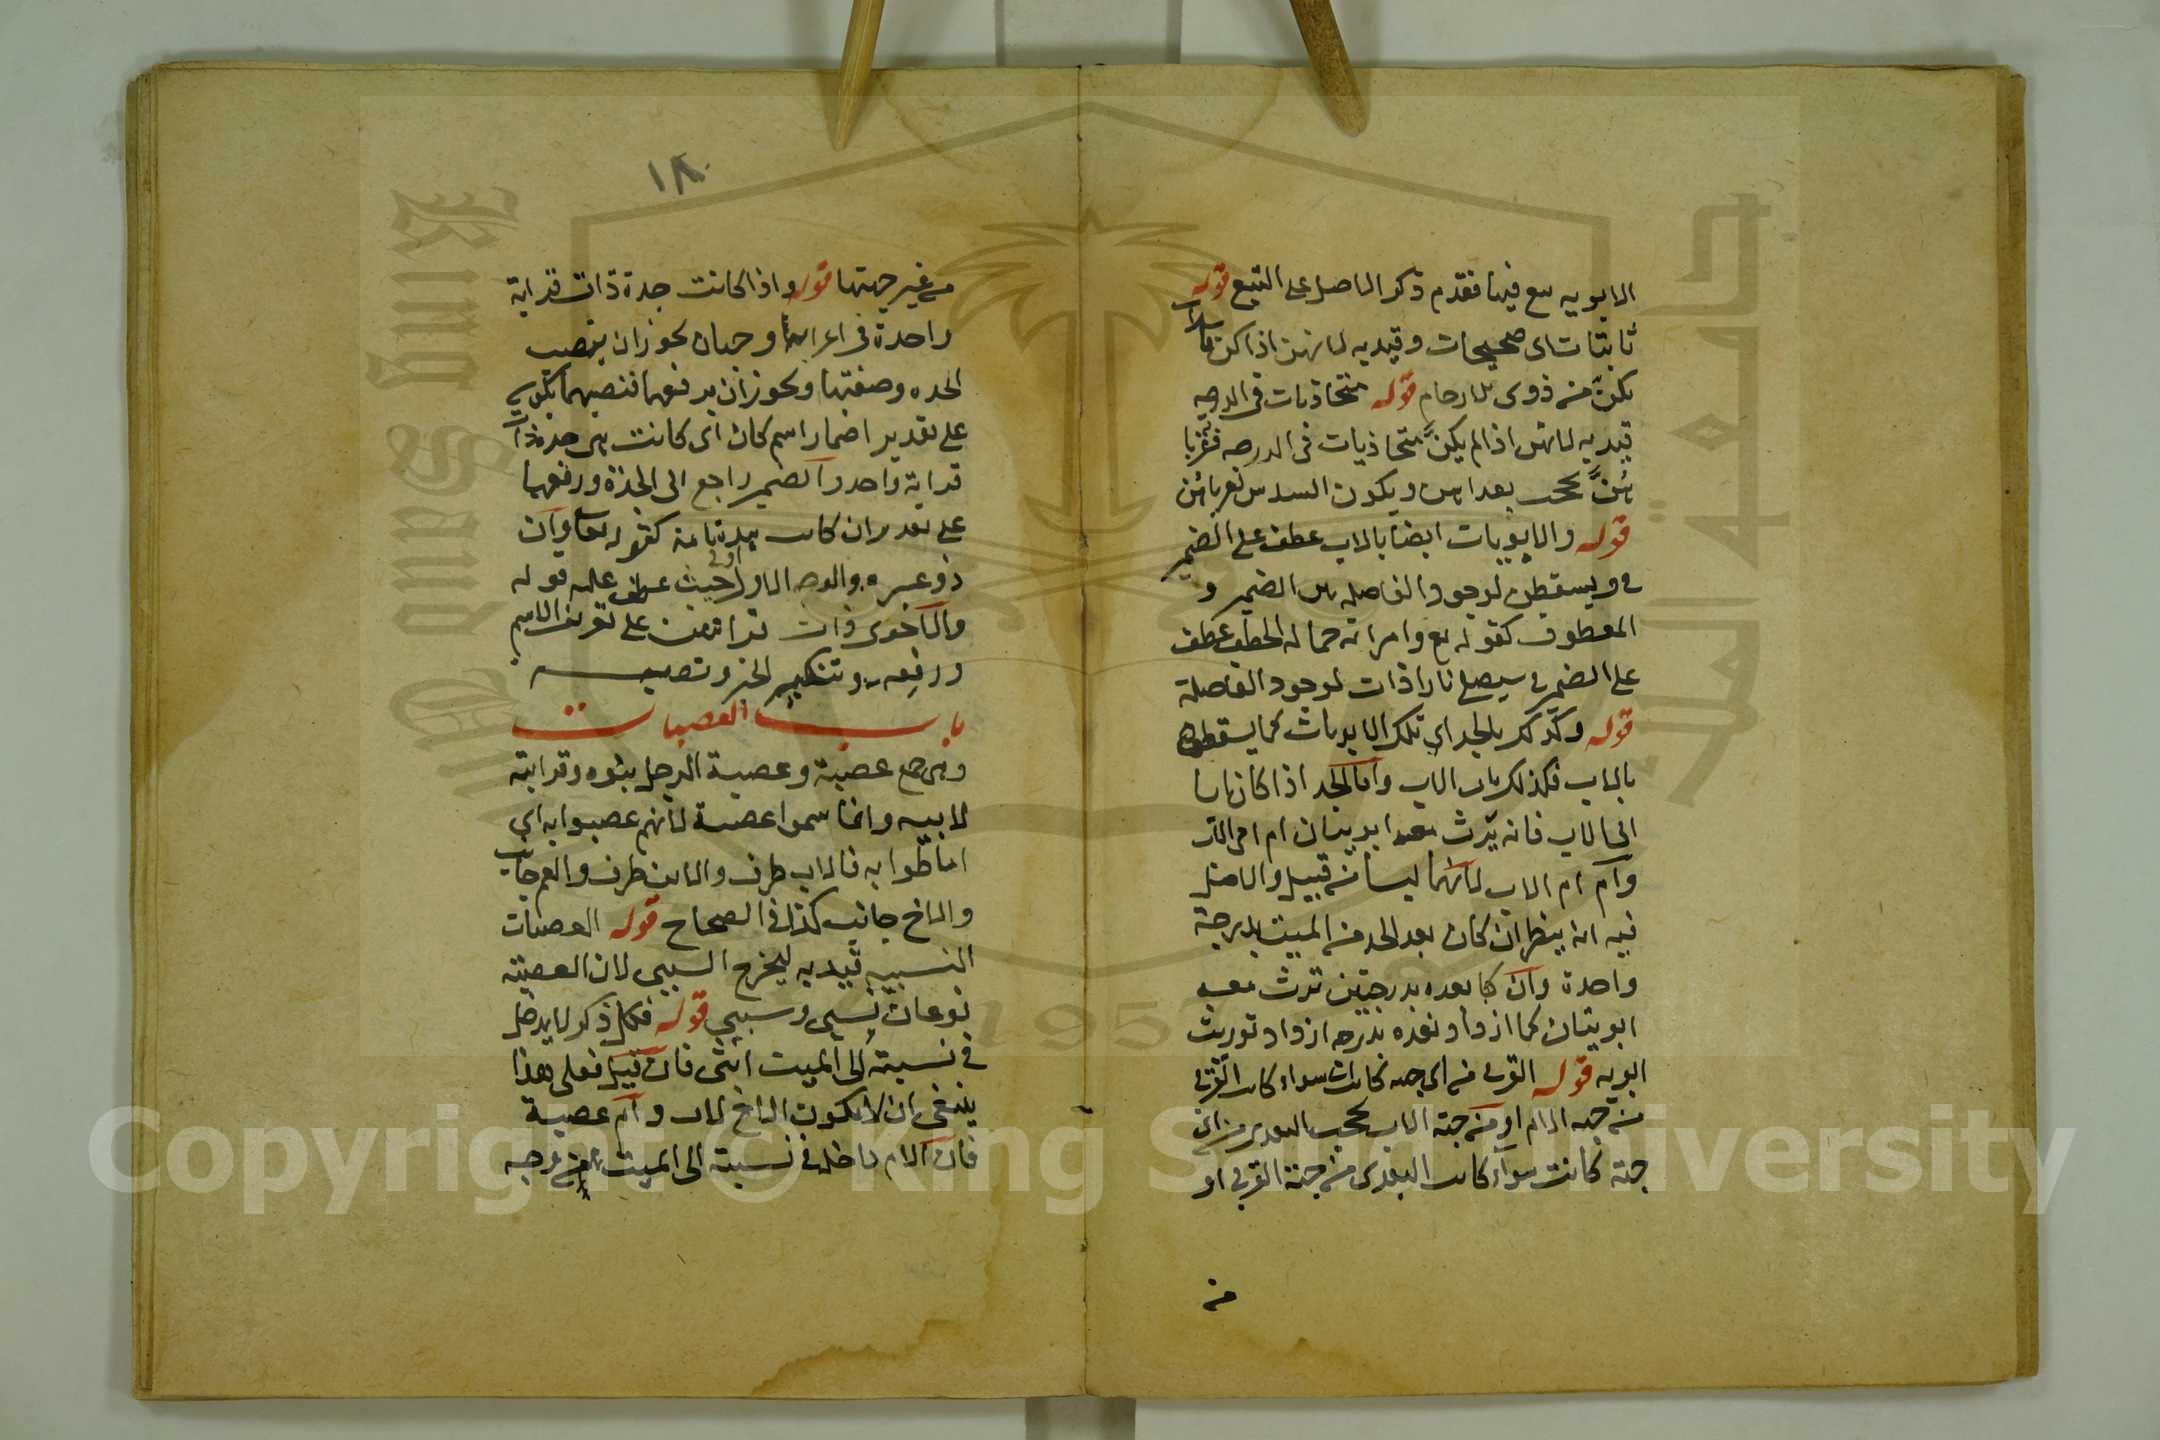 الابويه تبع فيها فقدم ذكر الاصل على التبع قوله
ثابتات اى صحيحات وقيد به لانهن اذا كن فاسدات
يكن من ذوى الارحام قوله متحاذيات فى الدرجه
قيد به لانهن اذا لم يكن متحاذيات فى الدرجه فقربا
هن تحجب بعداهن ويكون السدس لقرباهن
قوله والابويات ايضا بالاب عطف على الضمير
فى ويسقطن لوجود الفاصله بين الضمير و
المعطوف كقوله تع وامراته حمالة الحطب عطف
على الضمير فى سيصلى نارا ذات لوجود الفاصلة
قوله وكذلك بالجد اى تلك الابويات كما يسقطن
بالاب فكذلك بالاب واما الجد اذا كان ابا
الى الاب فانه يرث معه ابويتان ام ام الاب
وام ام الاب لانهما ليسا من قبيله والاصل
فيه ان ينظر ان كان بعد الجد من الميت بدرجة
واحدة وان كا بعده بدرجتين ترث معه
ابويتان كما ازداد بعده بدرجه ازداد توريث
ابويه قوله القربى من اى جهه كانت سواء كانت القربى
من جهه الام او من جهة الاب تحجب البعدى من اى
جهة كانت سواء كانت البعدى من جهة القربى او
من
١٨
من غير جهتها قوله واذا كانت جدة ذات قرابة
واحدة فى اعرابها وجهان يجوز ان ينصب
الجده وصفتها ويجوز ان يرفعهما فنصبهما يكون
على تقدير اضمار اسم كان اى كانت هى جدة ذات
قرابة واحد والضمير راجع الى الجدة ورفعهما
على تقدير ان كانت تامة كقوله تعا وان
ذو عسره والوجه الاول اولى حيث عطف عليه قوله
والاخرى ذات قرابتين على تعريف الاسم
ورفعه وتنكير الخبر ونصبه
باب العصبات
وهى جمع عصبة وعصبة الرجل بنوه وقرابته
لابيه وانما سموا عصبة لانهم عصبوا به اى
احاطوا به فالاب طرف والابن طرف والعم جانب
والاخ جانب كذا فى الصحاح قوله العصبات
النسبيه قيد به ليخرج السببى لان العصبة
نوعان نسبى وسببى قوله فكل ذكر لا يدخل
فى نسبته الى الميت انثى فان قيل فعلى هذا
ينبغى ان لا يكون الاخ لاب وام عصبة
فان الام داخلة فى نسبته الى الميت من وجه